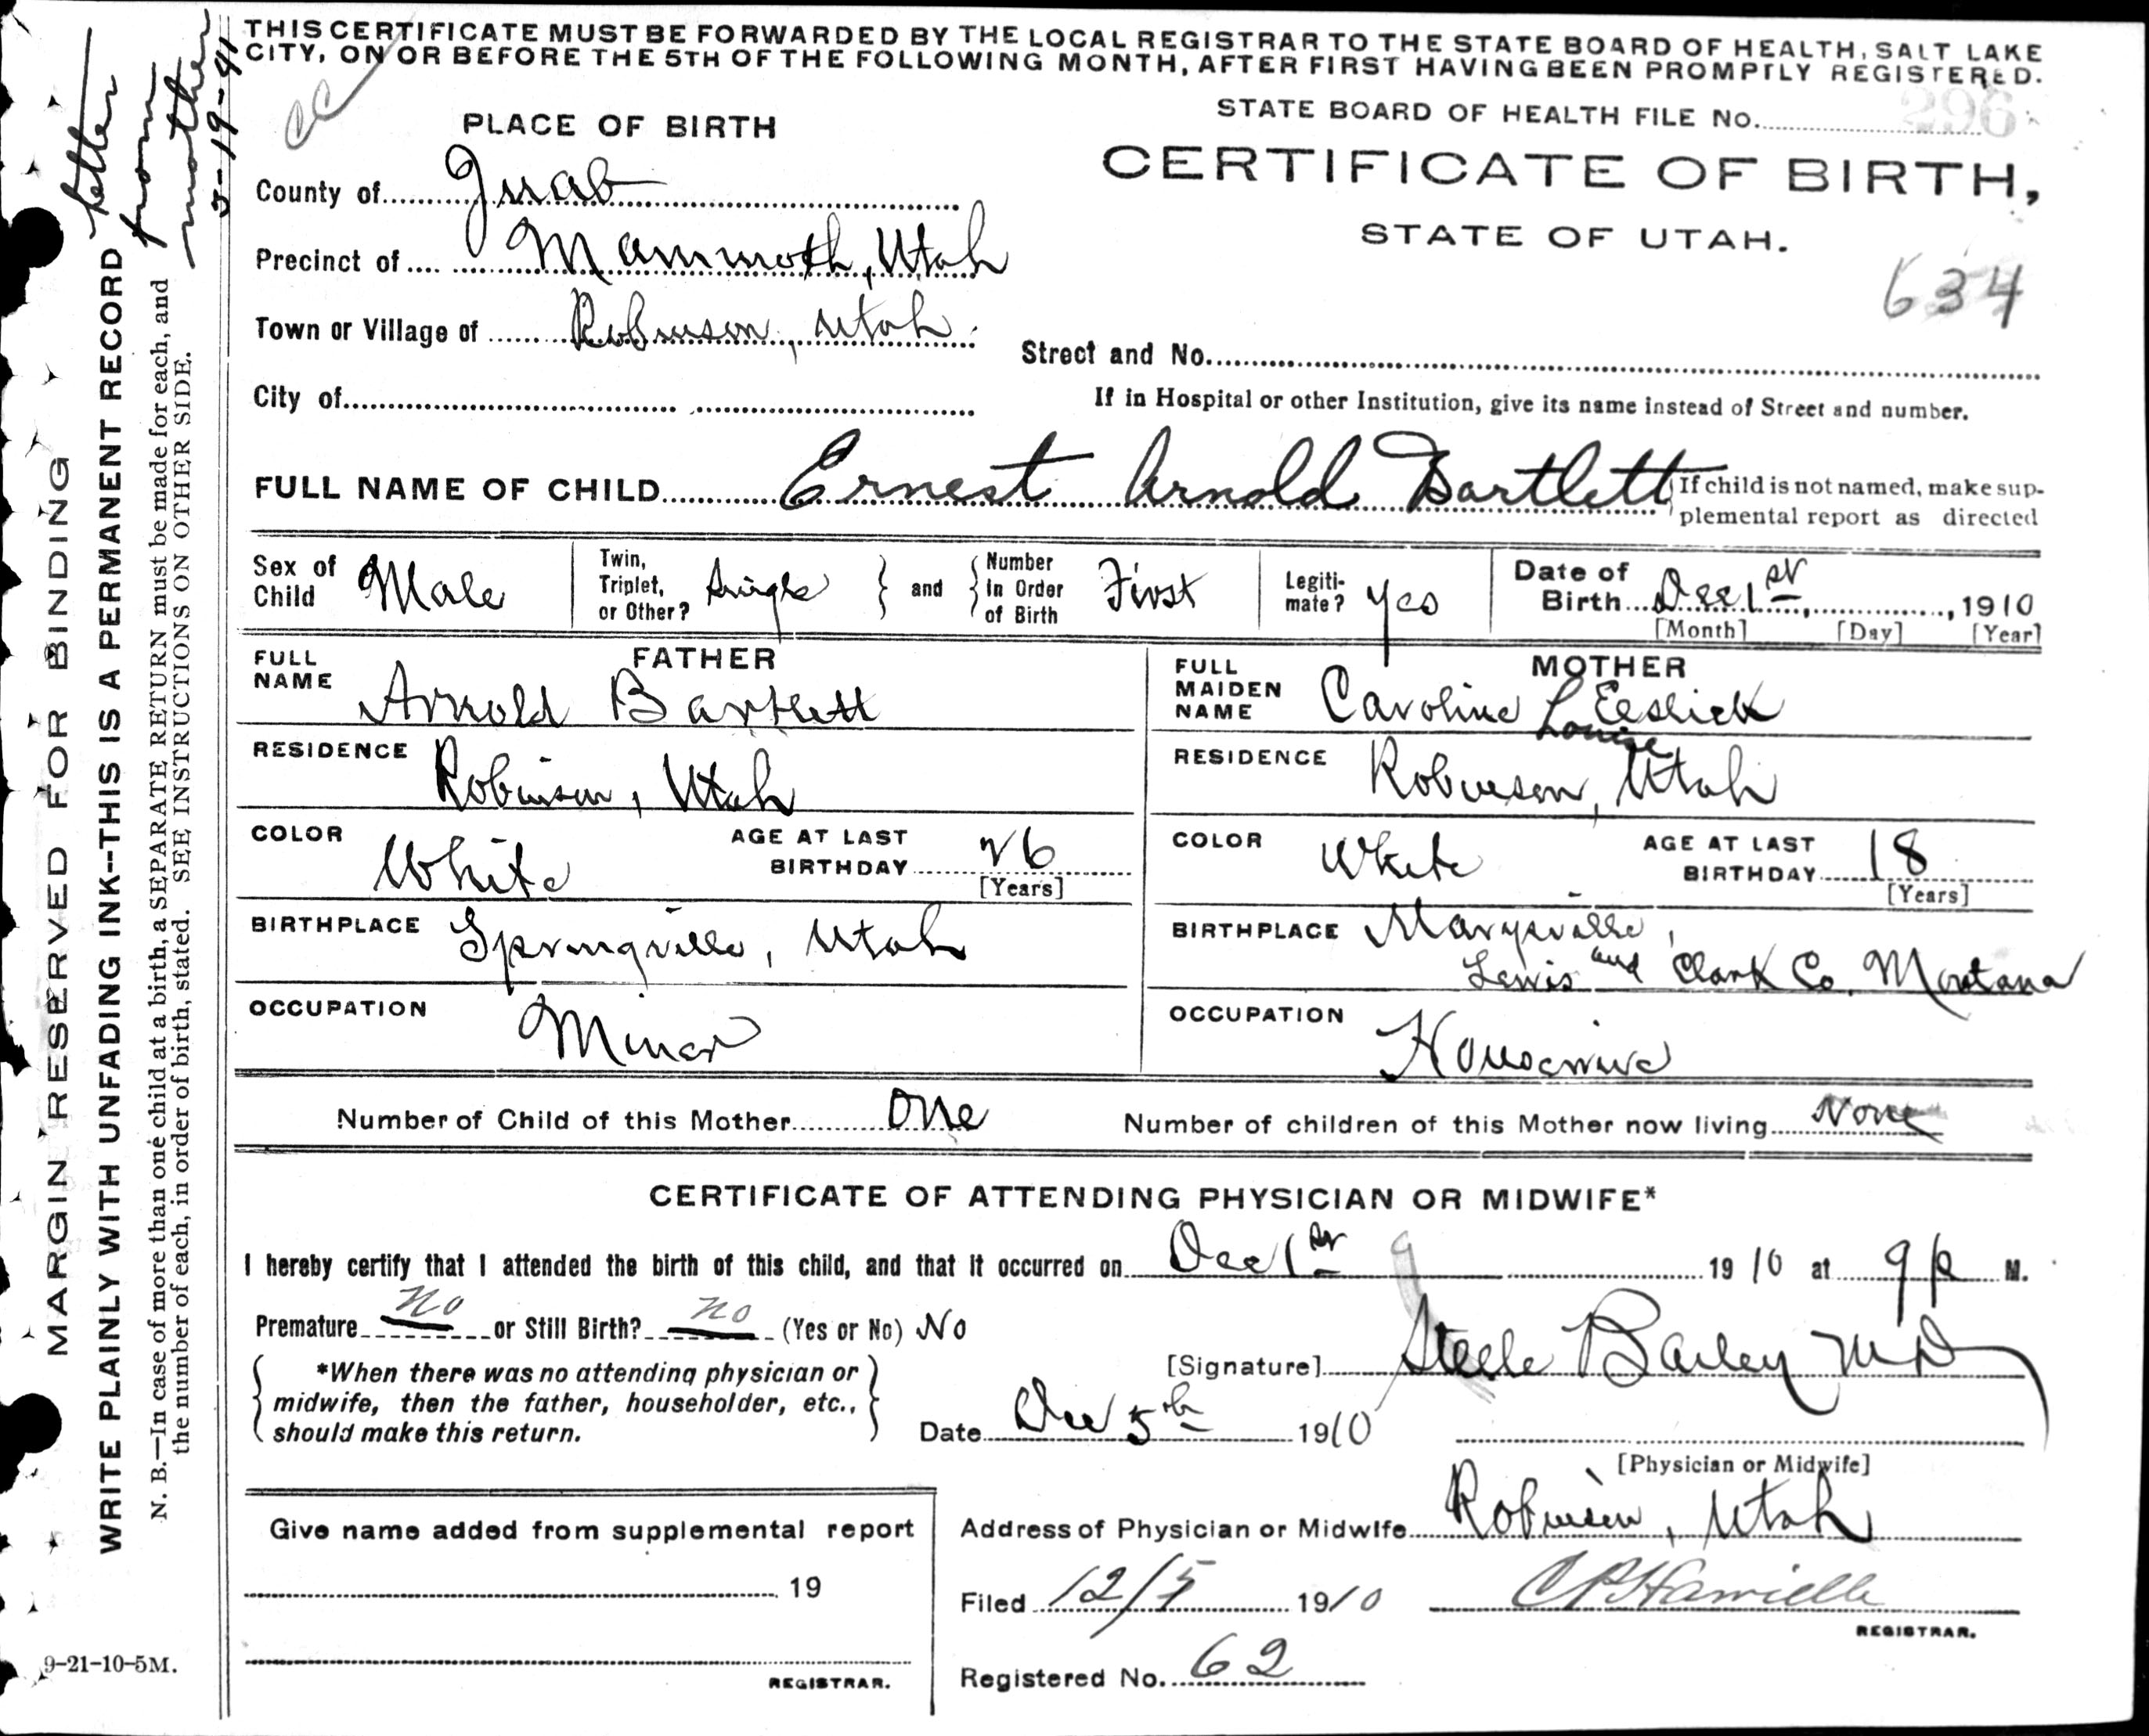 THIS CERTIFICATE MUST BE FORWARDED BY THE LOCAL REGISTRAR TO THE STATE BOARD OF HEALTH, SALT LAKE
CITY, ON OR BEFORE THE 5TH OF THE FOLLOWING MONTH, AFTER FIRST HAVING BEEN PROMPTLY REGISTERED.
STATE BOARD OF HEALTH FILE No. 296
PLACE OF BIRTH
CERTIFICATE OF BIRTH,
STATE OF UTAH.
634
County of Juab
Precinct of Mammoth, Utah
Town or Village of Robinson, Utah.
Street and No.
City of
If in Hospital or other Institution, give its name instead of Street and number.
FULL NAME OF CHILD Ernest Arnold Bartlett
If child is not named, make sup-
plemental report as directed
Sex of Child Male
Twin, Triplet, or Other? Single
and
Number in Order of Birth First
Legiti-mate? yes
Date of Birth Dec 1st, 1910
[Month] [Day] [Year]
FATHER
FULL NAME Arnold Bartlett
RESIDENCE Robinson, Utah
COLOR White
AGE AT LAST BIRTHDAY 26
[Years]
BIRTHPLACE Springville, Utah
OCCUPATION Miner
MOTHER
FULL MAIDEN NAME Caroline L Eeslick
Louise
RESIDENCE Robinson, Utah
COLOR White
AGE AT LAST BIRTHDAY 18
[Years]
BIRTHPLACE Marysville,
Lewis and Clark Co. Montana
OCCUPATION Housewife
Number of Child of this Mother One
Number of children of this Mother now living None
CERTIFICATE OF ATTENDING PHYSICIAN OR MIDWIFE*
I hereby certify that I attended the birth of this child, and that it occurred on Dec 1st 1910 at 9 p M.
Premature no or Still Birth? no (Yes or No) No
*When there was no attending physician or
midwife, then the father, householder, etc.,
should make this return.
[Signature] Steele Bailey M D
Date Dec 5th 1910
[Physician or Midwife]
Give name added from supplemental report
19
REGISTRAR.
Address of Physician or Midwife Robinson, Utah
Filed 12/5 1910
REGISTRAR.
Registered No. 62
9-21-10-5M.
MARGIN RESERVED FOR BINDING
WRITE PLAINLY WITH UNFADING INK--THIS IS A PERMANENT RECORD
N. B.—In case of more than one child at a birth, a SEPARATE RETURN must be made for each, and
the number of each, in order of birth, stated. SEE INSTRUCTIONS ON OTHER SIDE.
letter
from
mother
3-19-41